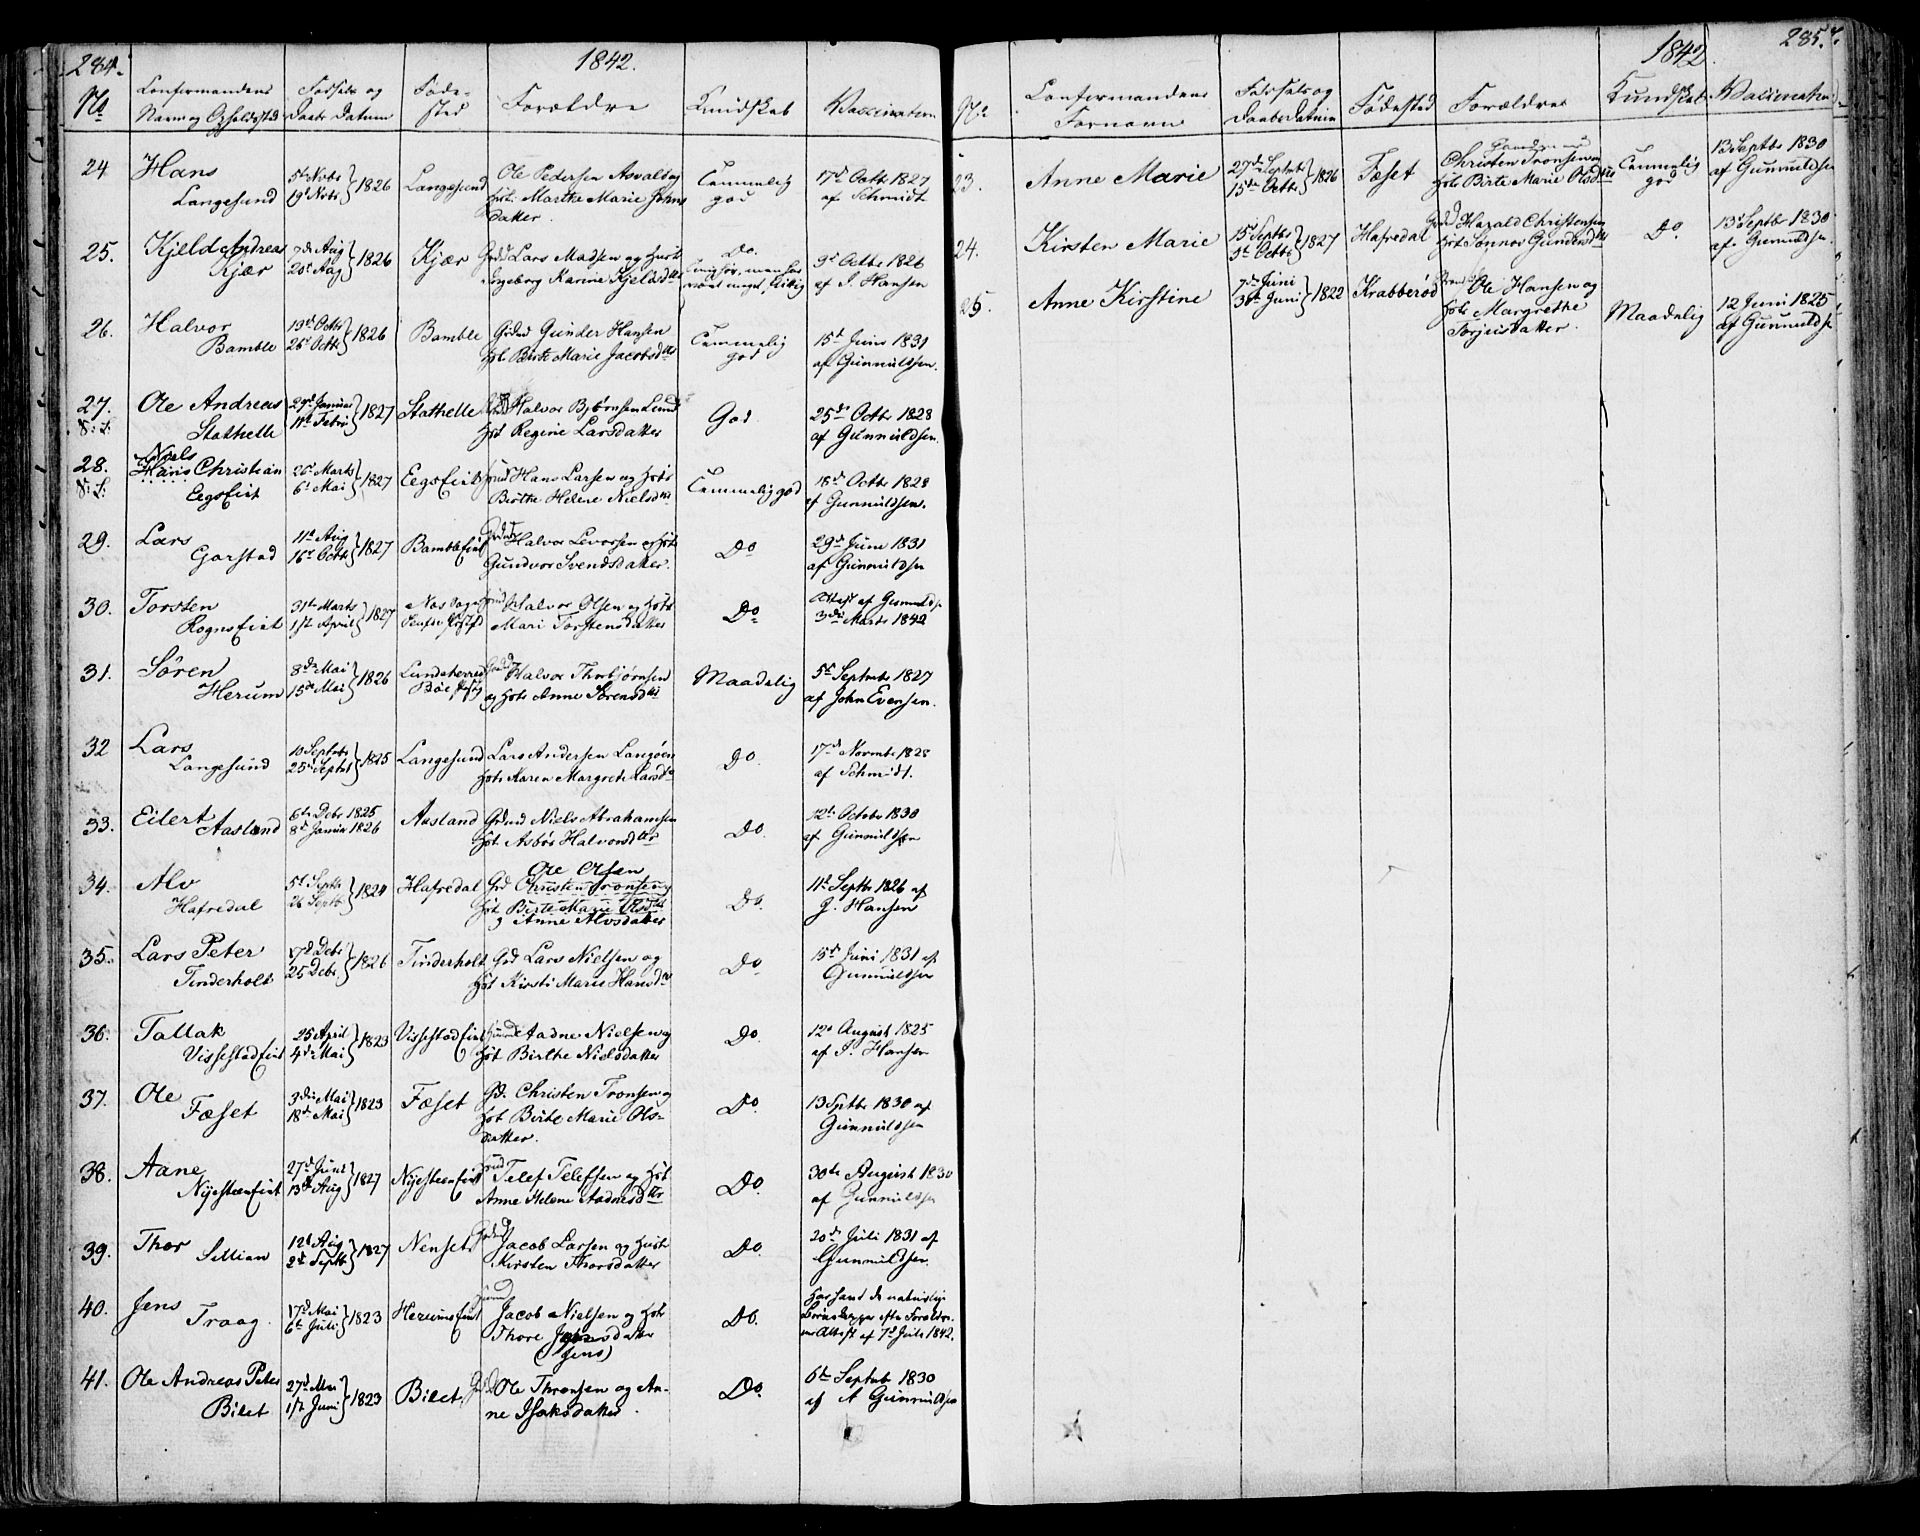 284.
1842.
No
Confirmandens
Navn og Opholdssted
Fødsels og
Daabs Datum
Føde-
sted
Forældre
Kundskab
Vaccination
24
Hans
Langesund
5t Novbr
19t Novbr } 1826
Langesund
Ole Pedersen Asvald og
Hst. Marthe Marie Johns
datter.
Temmelig
god
17d Octbr 1827
af Schmidt
25.
Kjeld Andreas
Kjær
7de Aug
20d Aug } 1826
Kjær
Lars Madsen og Hust
Ingeborg Karine Kjeldsdtr
Do.
9d Octbr 1826
af J. Hansen
26.
Halvor
Bamble
13d Octbr
26d Octbr } 1826
Bamble
Grdmd Gunder Hansen
Hst Birte Marie Jacobsdtr
Temmelig
god
15d Juni 1831
af Gunnuldsen.
27.
Ole Andreas
Stathelle
29d Januar
11d Febr } 1827
Stathelle
Halvor Bjørnsen Lund
Hst Regine Larsdatter
God
25de Octbr 1828
af Gunnuldsen.
28.
Niels
Hans Christian
Eegseiet
26d Marts
6t Mai } 1827
Eegseiet
Hans Larsen og Hst
Birthe Helene Nielsdtr
Temmelig god
18d Octbr 1828
af Gunnuldsen.
29.
Lars
Garstad
11d Aug
16d Octbr } 1827
Bambleeiet
Halvor Levorsen og Hst
Gundvor Svendsdatter.
Do
29d Juni 1831
af Gunnuldsen
30.
Torsten
Rognseiet
31te Marts
1st April } 1827
Halvor Olsen og Hst
Mari Torstensdatter
Do
Attest af Gunnulds
3die Marts 1842
31.
Søren
Herum
8de Mai
15de Mai } 1826
Lundeherred
Halvor Thorbjørnsen
og Hst Anne Sørensdtr
Maadelig
5t Septmbr 1827
af John Evensen.
32
Lars
Langesund
10 Septmbr
25d Septmb } 1825
Langesund
Lars Andersen Langøen
Hst Karen Margrete Larsdtr
Do.
17de Novmbr 1828
af Schmidt.
33.
Eilert Aasland
6te Debr 1825
8d Januar 1826
Aasland
Grdmd Niels Abrahamsen
Hst Asbør Halvorsdtr
Do.
12te October 1830
af Gunnuldsen
34.
Alv
Hafredal
5t Septbr
26 Septbr } 1824
Hafredal
Ole Olsen
Grd Christen Tronsen og
Hst Birte Marie Olsdtr
og Anne Alvsdatter
Do.
11d Septbr 1826 af
J. Hansen
35.
Lars Peter
Tinderholt
17d Debr
25 Debr. } 1826
Tinderholt
Grd Lars Nielsen og
Hst Kirsti Marie Hansdtr
Do
15d Juni 1831 af
Gunnuldsen
36.
Tallak
Vissestadeiet
25 April
4de Mai } 1823
Vissestadeiet
Aadne Nielsen og
Hst Birthe Nielsdatter
Do.
12te August 1825
af J. Hansen
37.
Ole
Fæset
3die Mai
18d Mai } 1823
Fæset
Gd. Christen Tronsen og
Hst Birte Marie Ols-
datter.
Do.
13 Sptbr 1830 af
Gunnuldsen
38.
Aane
Nyesteeneiet
27d Juni
13de Aug } 1827
Nyesteeneiet
Telef Telefsen og Hst
Anne Helene Aadnesdtr
Do.
30te August 1830
af Gunnuldsen
39.
Thor
Sillian
12d Aug
2d Septbr } 1827
Nenset
Jacob Larsen og Hust
Kirsten Thorsdatter
Do.
20d Juli 1831 af
Gunnuldsen.
40.
Jens
Traag.
17d Mai
6t Juli } 1823
Herumseiet
Jacob Nielsen og Hst
Thore Jensdatter
(Jens)
Do.
Har havt de naturlige
Børnekopper efter Forældre-
nes Attest af 7d Juli 1842.
41.
Ole Andreas Peter
Bilet
27d Mai
1st Juni } 1823
Bilet
Ole Thronsen og An-
ne Isaksdatter.
Do.
6t Septmbr 1830
af A Gunnuldsen
285.
1842.
No
Confirmandens
Fornavn
Fødsels og
Daabs Datum
Fødested
Forældre
Kundskab
Vaccination
23.
Anne Marie
27de Septmbr
15de Octbr } 1826
Fæset
Christen Tronsen og
Hst Birte Marie Olsdtr
Temmelig
god
13 Septbr 1830
af Gunnuldsen
24.
Kirsten Marie
15 Septbr
5te Octbr } 1827
Hafredal
Grd Harald Christensen
Hst Tønnov Gundersdtr
Do.
13d Septbr 1830
af Gunnuldsen.
25.
Anne Kirstine
7de Juni
30te Juni } 1822
Krabberød
Ole Hansen og
Hst Margrethe
Torjusdatter.
Maadelig
12 Juni 1825
af Gunnuldse